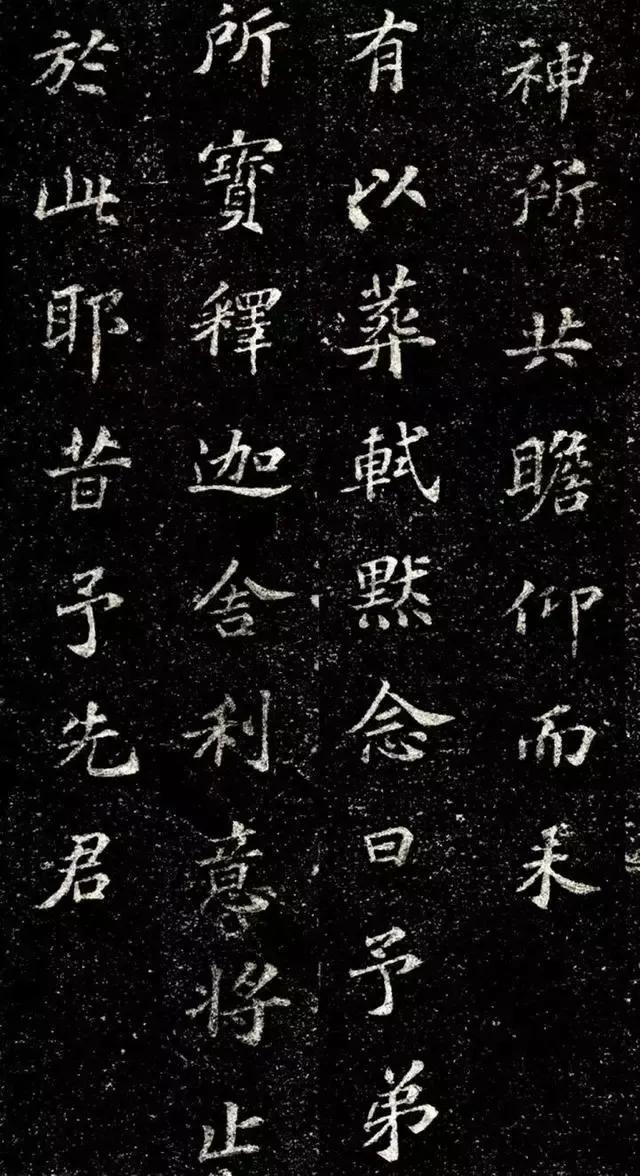 神所共瞻仰而未
有以葬軾默念曰予弟
所寶釋迦舍利意將止
於此耶昔予先君